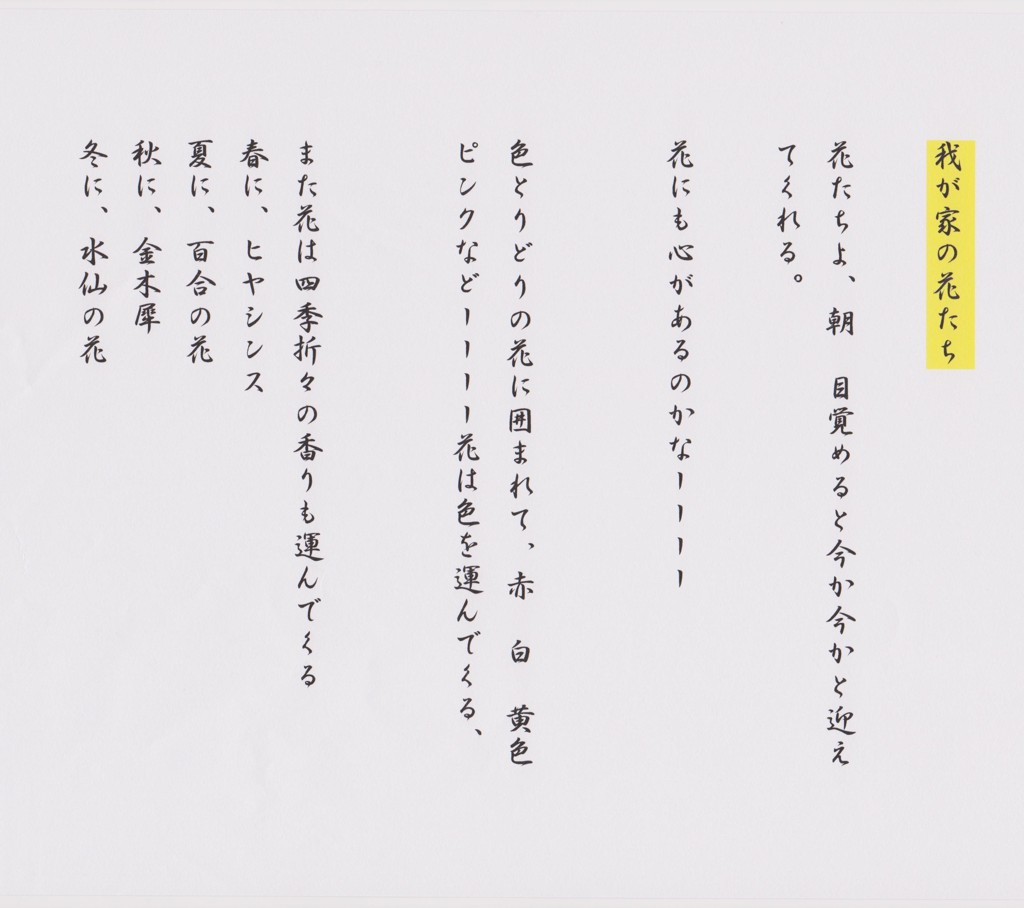 我が家の花たち
花たちよ、朝　目覚めると今か今かと迎え
てくれる。
花にも心があるのかなーーーー
色とりどりの花に囲まれて、赤　白　黄色
ピンクなどーーーー花は色を運んでくる、
また花は四季折々の香りも運んでくる
春に、ヒヤシンス
夏に、百合の花
秋に、金木犀
冬に、水仙の花